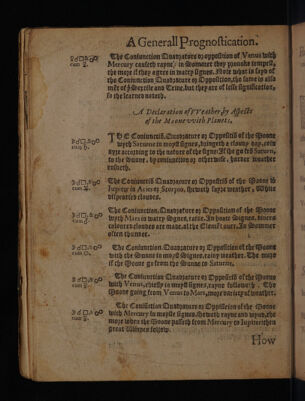 A Generall Prognostication.
The Coniunction Quadrature or opposition of Venus with
Mercury causeth rayne: in Sommer they prouoke tempest,
the more if they agree in watry signes. Note what is sayd of
the Coniunction Quadrature or Opposition, the same is also
mēt of ye Sextile and Trine, but they are of lesse signification,
so the learned noteth.
A Declaration of Weather, by Aspects
of the Moone with Planets.
THE Coniunctiō, Quadrature or Oppositiō of the Moone
wyth Saturne in moyst signes, bringeth a clowdy day, cold
ayre according to the nature of the signe: If she go frō Saturn,
to the Sunne, by coniunction or otherwise, harder weather
ensueth.
The Coniunctiō Quadrature or Oppositiō of the Moone to
Iupiter in Aries or Scorpio, sheweth fayre weather, White
dispearsed cloudes.
The Coniunction, Quadrature or Opposition of the Moone
wyth Mars in watry Signes, raine. In hote Signes, diuers
coloured cloudes are made al the Element ouer. In Sommer
often thunder.
The Coniunction, Quadrature or Opposition of the Moone
with the Sunne in moyst Signes, rainy weather. The more
if the Moone go from the Sunne to Saturne.
The Coniunction Quadrature or Opposition of the Moone
with Venus, chiefly in moyst signes, rayne followeth. The
Moone going from Venus to Mars, more variety of weather.
The Coniunction Quadrature or Opposition of the Moone
with Mercury in moyste signes, sheweth rayne and wynd, the
more when the Moone passeth from Mercury to Iupiter: then
great Windes folow.
How